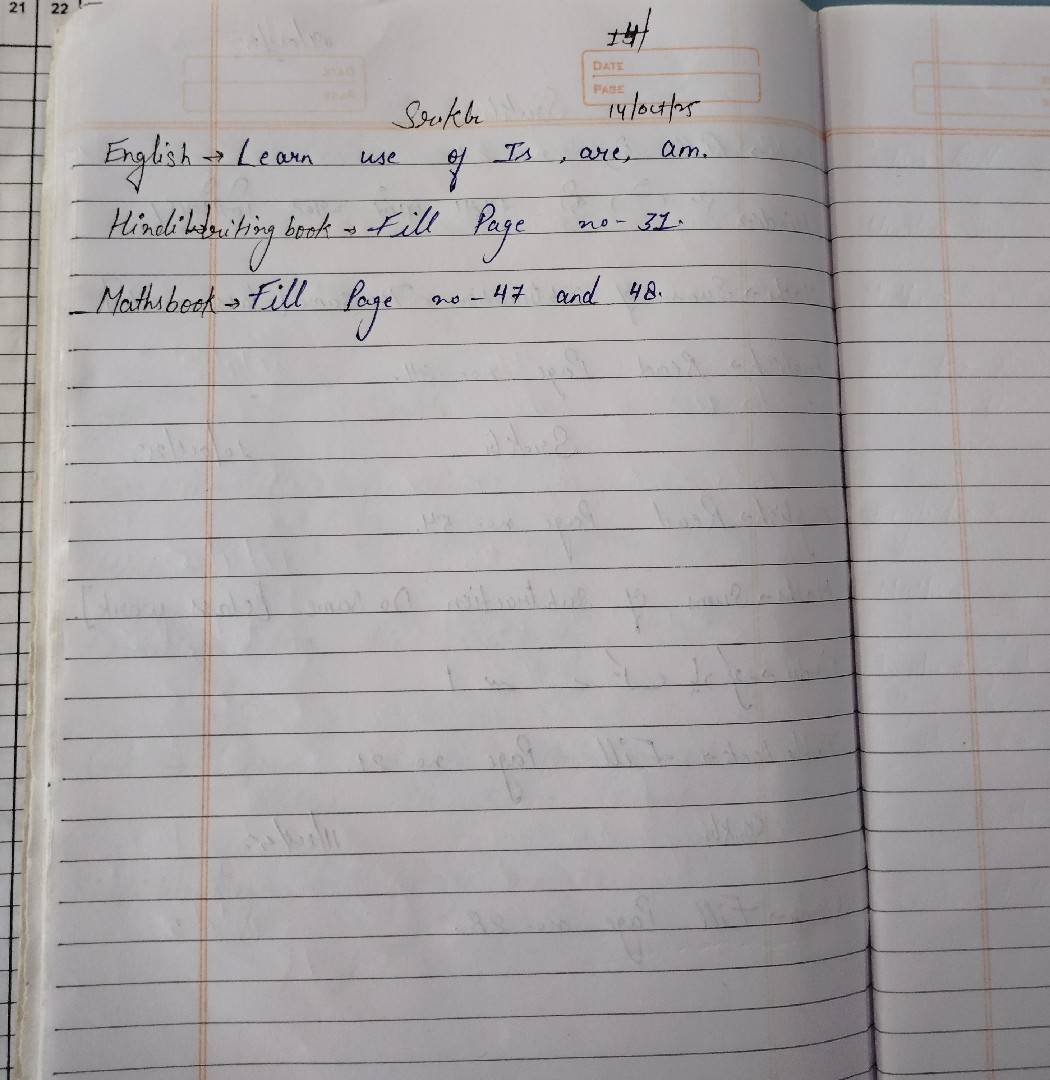 21 22
14/
DATE
PAGE
14/oct/25
English → Learn use of Is, are, am.
Hindi writing book → Fill Page no - 31.
Maths book → Fill Page no - 47 and 48.